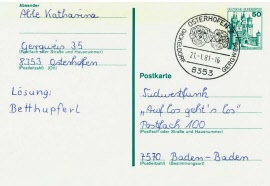 Absender
Alte Katharina
Gergweis 35
(Straße und Hausnummer oder Postfach)
8353 Osterhofen
(Postleitzahl) (Ort)
Lösung:
Betthupferl
OSTERHOFEN
21.-1.81-16
8353
DEUTSCHE BUNDESPOST
50
Postkarte
Südwestfunk
„Auf los geht's los"
Postfach 100
(Straße und Hausnummer oder Postfach)
7570 Baden-Baden
(Postleitzahl) (Bestimmungsort)